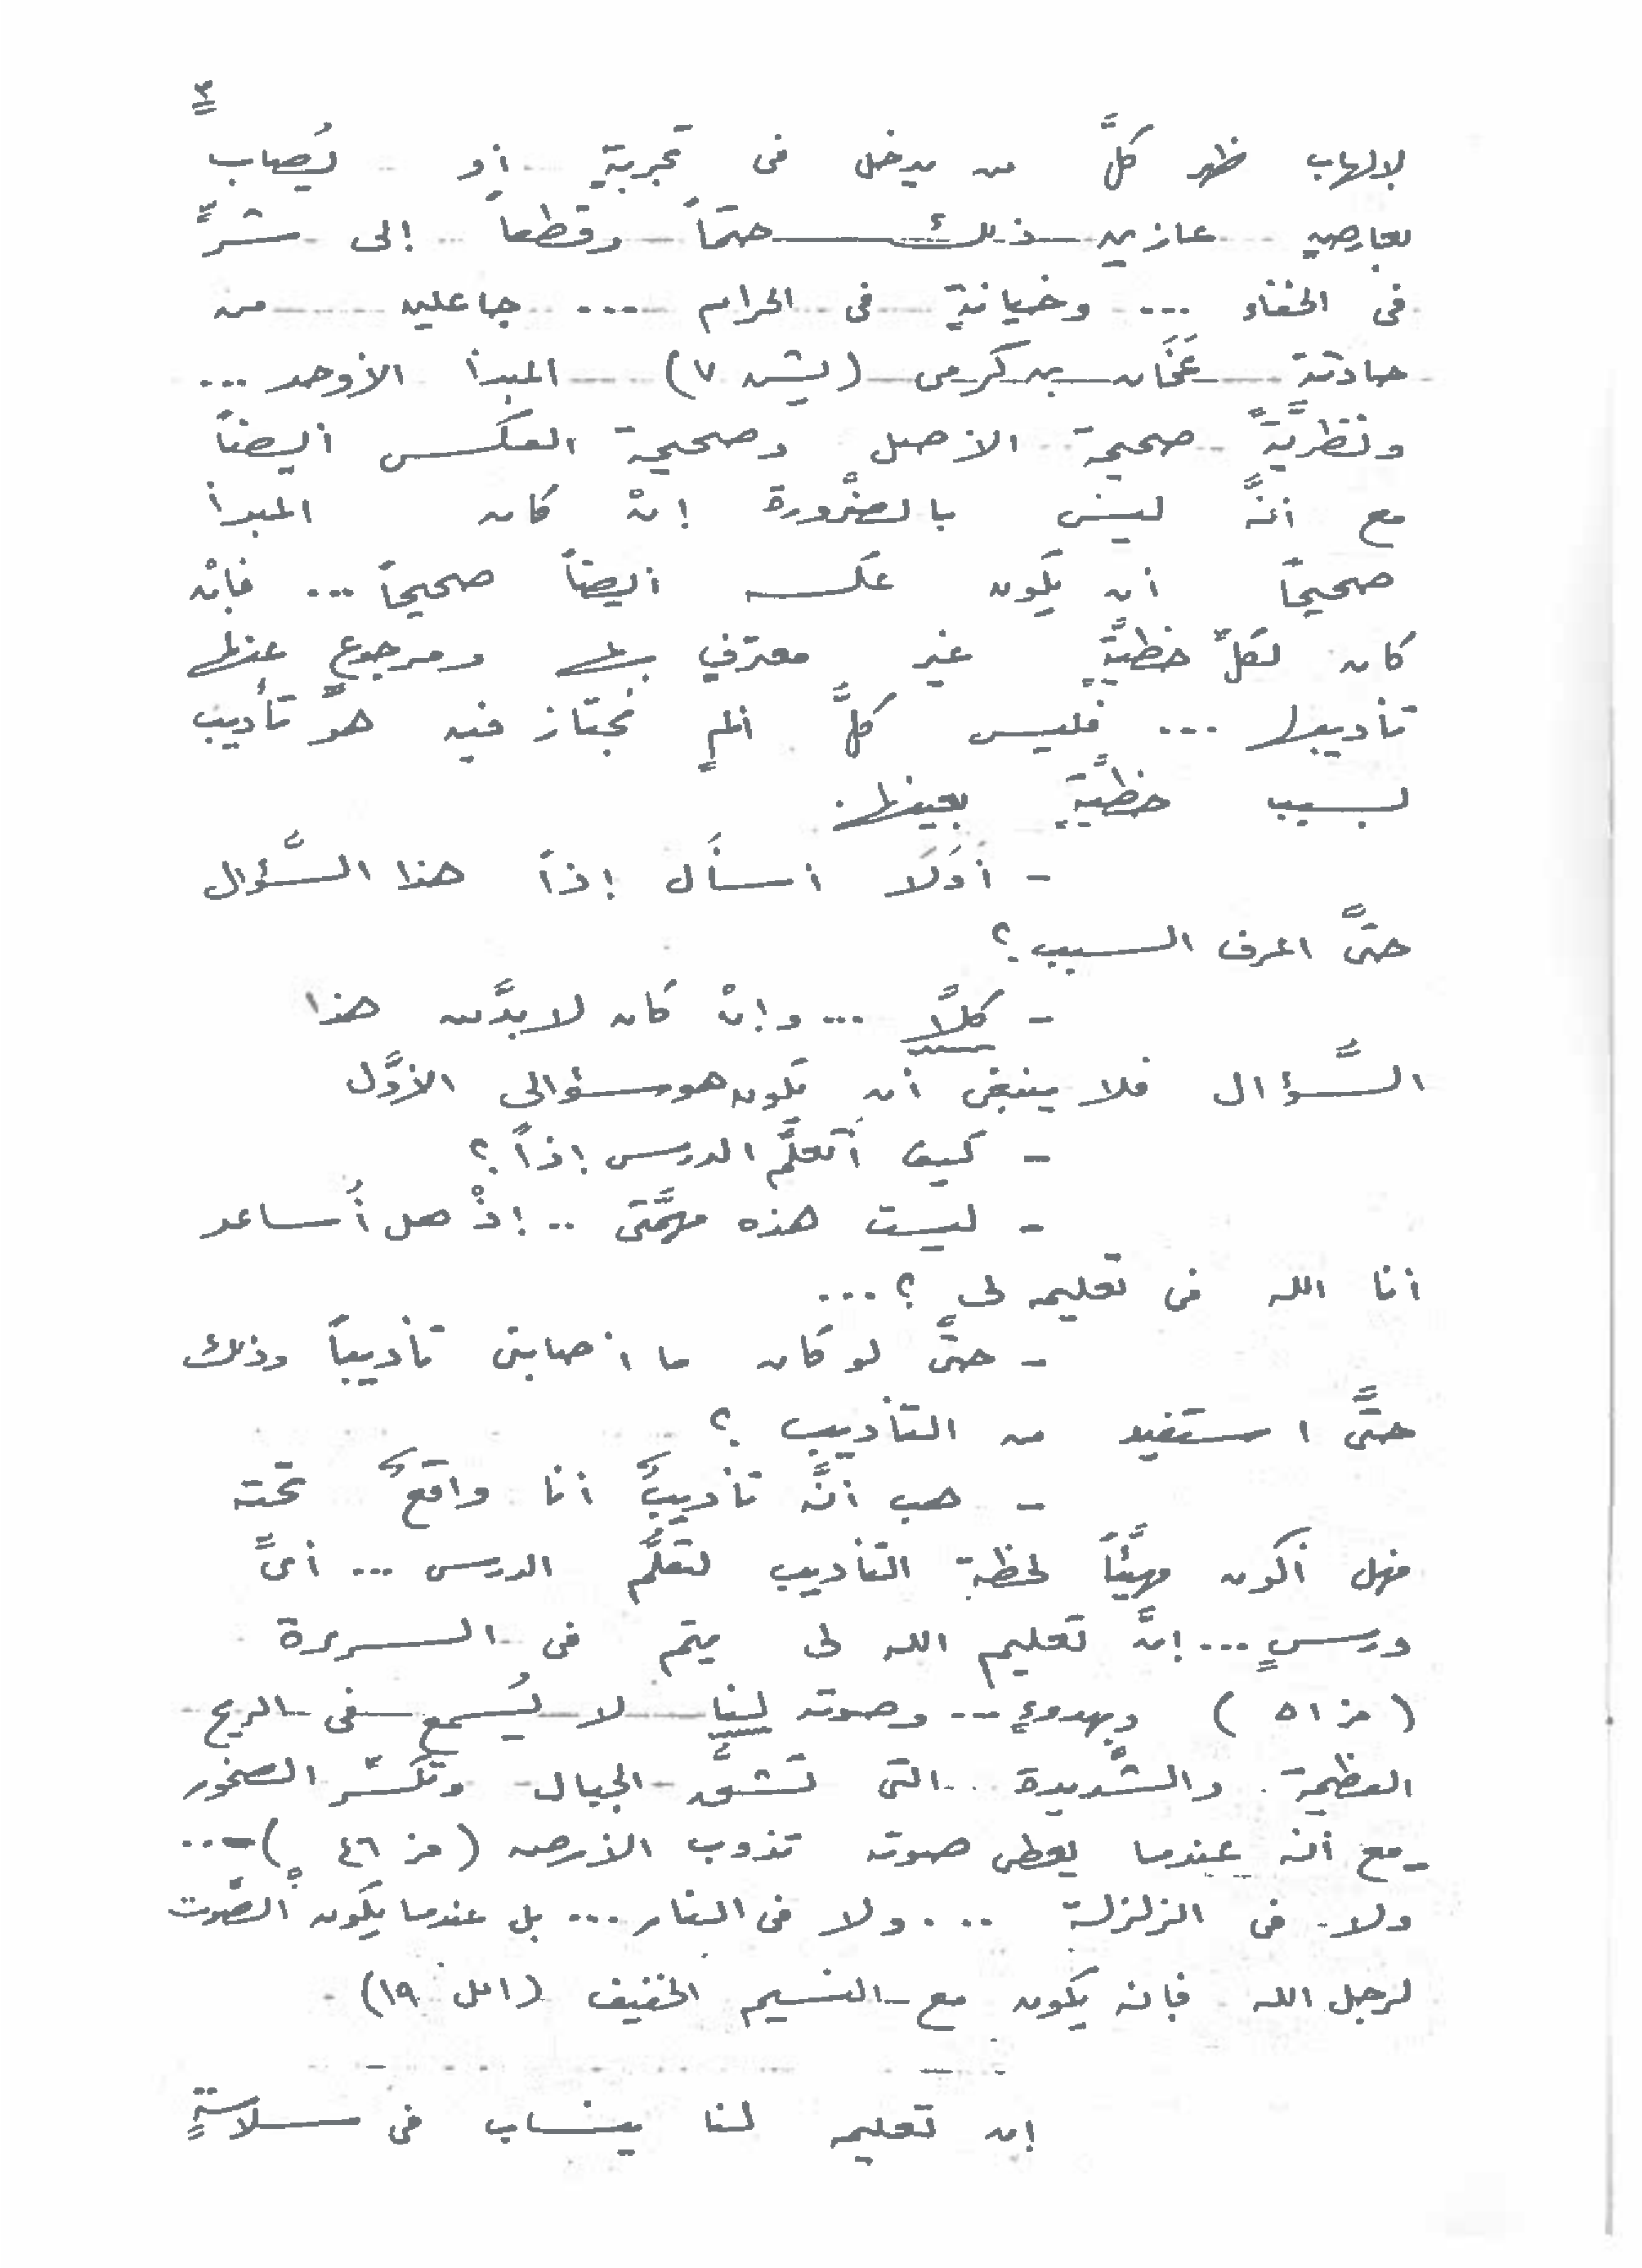 ٣
لإلهاب ظهر كلَّ من يدخل فى تجربةٍ أو يُصاب
بعارضٍ عازين ذلك حتماً وقطعاً إلى شرٍّ
فى الخفاء ... وخيانةٍ فى الحرام ... جاعلين من
حادثة عَخَان بن كرمى (يش ٧) المبدأ الأوحد ...
ونظريَّةً صحيحة الأصل وصحيحة العكس أيضاً
مع أنَّه ليس بالضَّرورة إنْ كان المبدأ
صحيحاً أن يكون عكسه أيضاً صحيحاً ... فإنْ
كان لكلِّ خطيَّةٍ غير معترفٍ بها ومرجوعٍ عنها
تأديبها ... فليس كلَّ ألمٍ نُجتاز فيه هوَّ تأديب
بسبب خطيَّةٍ بعينها.
- أوَلَا أسأَل إذاً هذا السَّؤال
حتَّى اعرف السبب؟
- كلَّا ... وإنْ كان لابدَّ من هذا
السَّؤال فلا ينبغى أن يكون هو سؤالى الأوَّل
- كيف أتعلَّم الدرس إذاً؟
- ليست هذه مهمَّتى .. إذْ هل أُساعد
أنا الله فى تعليمه لى ؟ ...
- حتَّى لو كان ما أصابنى تأديباً وذلك
حتَّى استفيد من التأديب ؟
- هب أنَّه تأديبٌ أنا واقعٌ تحته
فهل أكون مهيَّئاً لحظة التأديب لتعلُّم الدرس ... أىَّ
درسٍ ... إنَّ تعليم الله لى يتم فى السريرة
(مز ٥١) وبهدوءٍ -- وصوته لينا لا يُسمع فى الريح
العظيمة والشَّديدة التى تشقُّ الجبال وتكسِّر الصخور
- مع أنه عندما يعطى صوته تذوب الأرض (مز ٤٦) - ..
ولا فى الزلزلة ... ولا فى النار ... بل عندما يكون الصَّوت
لرجل الله فإنه يكون مع النسيم الخفيف (١مل ١٩)
إن تعليمه لنا ينساب فى سلاسةٍ